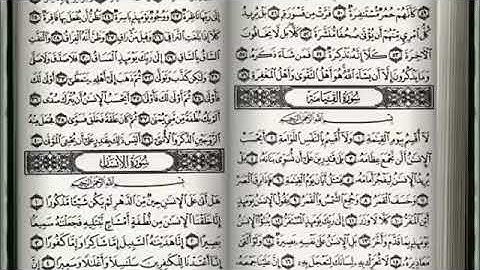 كَأَنَّهُمْ حُمُرٌ مُّسْتَنفِرَةٌ ٥٠ فَرَّتْ مِن قَسْوَرَةٍ ٥١ بَلْ يُرِيدُ
كُلُّ امْرِئٍ مِّنْهُمْ أَن يُؤْتَىٰ صُحُفًا مُّنَشَّرَةً ٥٢ كَلَّا بَل لَّا يَخَافُونَ
الْآخِرَةَ ٥٣ كَلَّا إِنَّهُ تَذْكِرَةٌ ٥٤ فَمَن شَاءَ ذَكَرَهُ ٥٥
وَمَا يَذْكُرُونَ إِلَّا أَن يَشَاءَ اللَّهُ هُوَ أَهْلُ التَّقْوَىٰ وَأَهْلُ الْمَغْفِرَةِ ٥٦
سُورَةُ الْقِيَامَةِ
بِسْمِ اللَّهِ الرَّحْمَٰنِ الرَّحِيمِ
لَا أُقْسِمُ بِيَوْمِ الْقِيَٰمَةِ ١ وَلَا أُقْسِمُ بِالنَّفْسِ اللَّوَّامَةِ ٢ أَيَحْسَبُ
الْإِنسَٰنُ أَلَّن نَّجْمَعَ عِظَامَهُ ٣ بَلَىٰ قَٰدِرِينَ عَلَىٰ أَن نُّسَوِّيَ بَنَانَهُ ٤ بَلْ
يُرِيدُ الْإِنسَٰنُ لِيَفْجُرَ أَمَامَهُ ٥ يَسْأَلُ أَيَّانَ يَوْمُ الْقِيَٰمَةِ ٦ فَإِذَا بَرِقَ الْبَصَرُ
٧ وَخَسَفَ الْقَمَرُ ٨ وَجُمِعَ الشَّمْسُ وَالْقَمَرُ ٩ يَقُولُ الْإِنسَٰنُ يَوْمَئِذٍ أَيْنَ
الْمَفَرُّ ١٠ كَلَّا لَا وَزَرَ ١١ إِلَىٰ رَبِّكَ يَوْمَئِذٍ الْمُسْتَقَرُّ ١٢ يُنَبَّؤُا الْإِنسَٰنُ
يَوْمَئِذٍ بِمَا قَدَّمَ وَأَخَّرَ ١٣ بَلِ الْإِنسَٰنُ عَلَىٰ نَفْسِهِ بَصِيرَةٌ ١٤ وَلَوْ أَلْقَىٰ
مَعَاذِيرَهُ ١٥ لَا تُحَرِّكْ بِهِ لِسَانَكَ لِتَعْجَلَ بِهِ ١٦ إِنَّ عَلَيْنَا جَمْعَهُ
إِلَىٰ رَبِّهَا نَاظِرَةٌ ٢٣ وَوُجُوهٌ يَوْمَئِذٍ بَاسِرَةٌ ٢٤ تَظُنُّ أَن يُفْعَلَ بِهَا فَاقِرَةٌ
٢٥ كَلَّا إِذَا بَلَغَتِ التَّرَاقِيَ ٢٦ وَقِيلَ مَنْ رَاقٍ ٢٧ وَظَنَّ أَنَّهُ الْفِرَاقُ ٢٨ وَالْتَفَّتِ
السَّاقُ بِالسَّاقِ ٢٩ إِلَىٰ رَبِّكَ يَوْمَئِذٍ الْمَسَاقُ ٣٠ فَلَا صَدَّقَ وَلَا صَلَّىٰ
٣١ وَلَٰكِن كَذَّبَ وَتَوَلَّىٰ ٣٢ ثُمَّ ذَهَبَ إِلَىٰ أَهْلِهِ يَتَمَطَّىٰ ٣٣ أَوْلَىٰ لَكَ
فَأَوْلَىٰ ٣٤ ثُمَّ أَوْلَىٰ لَكَ فَأَوْلَىٰ ٣٥ أَيَحْسَبُ الْإِنسَٰنُ أَن يُتْرَكَ سُدًى
٣٦ أَلَمْ يَكُ نُطْفَةً مِّن مَّنِيٍّ يُمْنَىٰ ٣٧ ثُمَّ كَانَ عَلَقَةً فَخَلَقَ فَسَوَّىٰ ٣٨ فَجَعَلَ مِنْهُ
الزَّوْجَيْنِ الذَّكَرَ وَالْأُنثَىٰ ٣٩ أَلَيْسَ ذَٰلِكَ بِقَٰدِرٍ عَلَىٰ أَن يُحْيِيَ الْمَوْتَىٰ ٤٠
سُورَةُ الْإِنسَانِ
بِسْمِ اللَّهِ الرَّحْمَٰنِ الرَّحِيمِ
هَلْ أَتَىٰ عَلَى الْإِنسَٰنِ حِينٌ مِّنَ الدَّهْرِ لَمْ يَكُن شَيْئًا مَّذْكُورًا ١
إِنَّا خَلَقْنَا الْإِنسَٰنَ مِن نُّطْفَةٍ أَمْشَاجٍ نَّبْتَلِيهِ فَجَعَلْنَٰهُ سَمِيعًا
بَصِيرًا ٢ إِنَّا هَدَيْنَٰهُ السَّبِيلَ إِمَّا شَاكِرًا وَإِمَّا كَفُورًا ٣
إِنَّا أَعْتَدْنَا لِلْكَٰفِرِينَ سَلَٰسِلَا وَأَغْلَٰلًا وَسَعِيرًا ٤